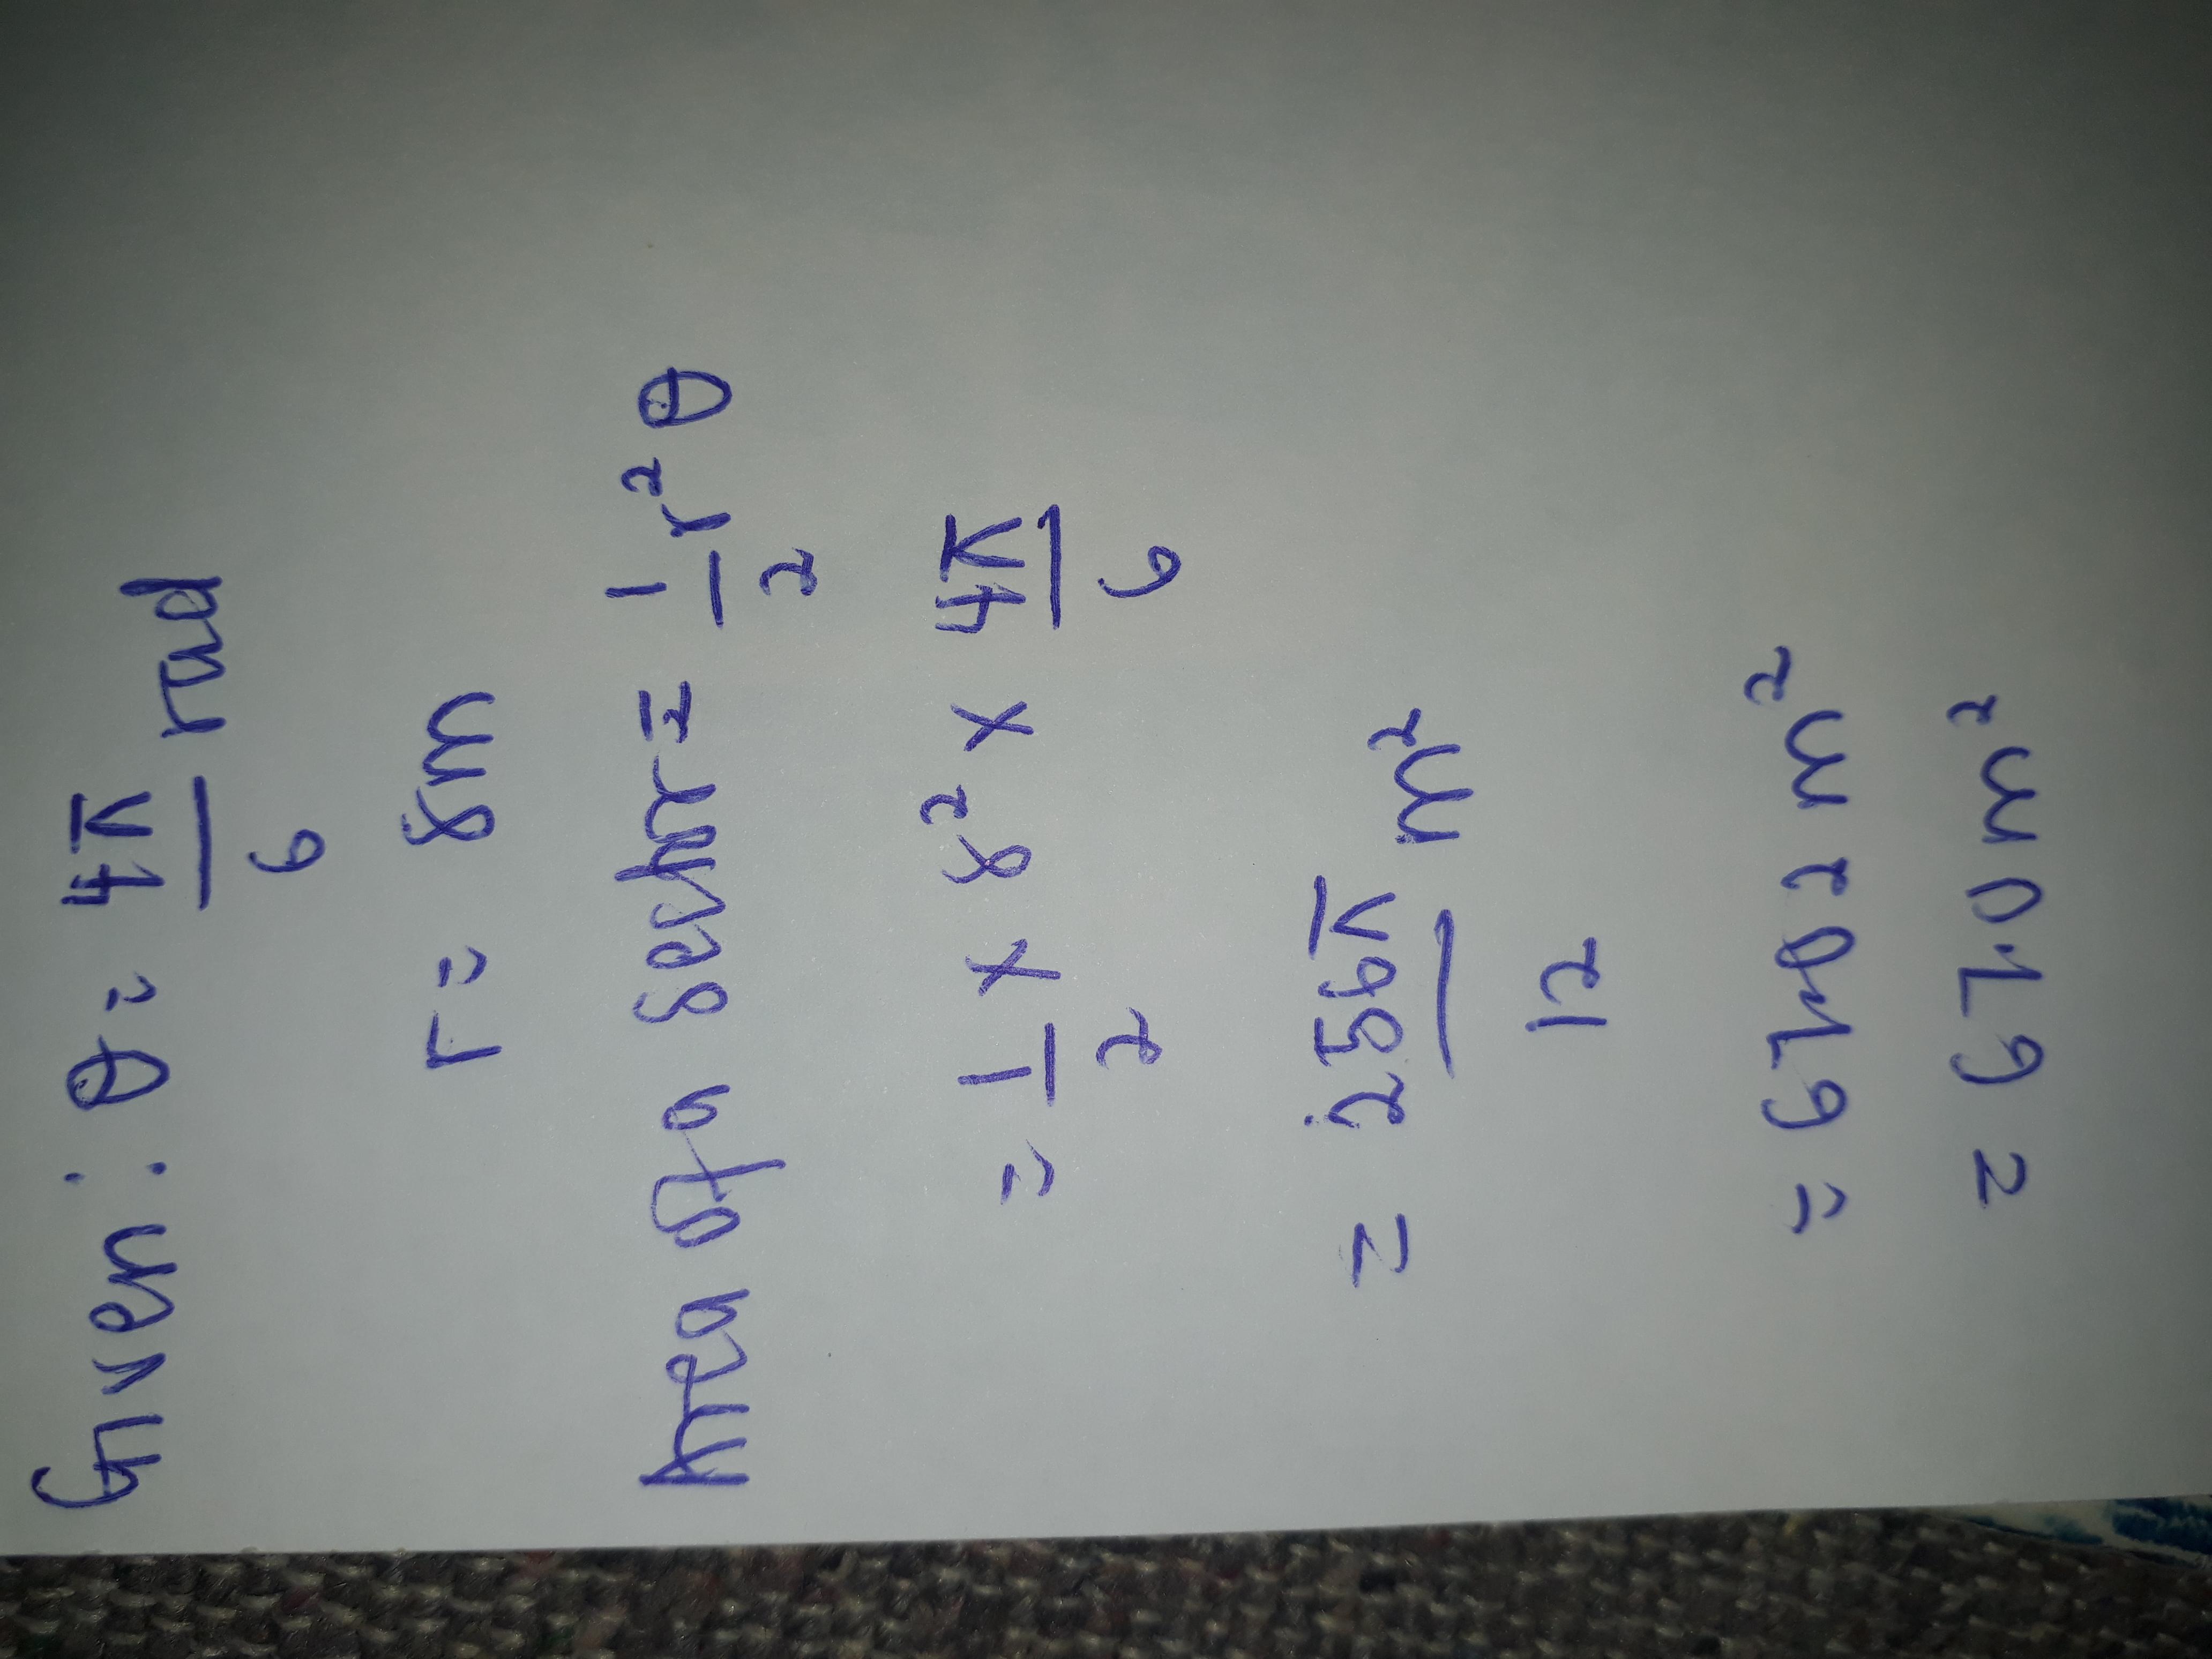 Given : θ = 4π/6 rad
r = 8m
Area of a sector = 1/2 r²θ
= 1/2 × 8² × 4π/6
= 256π/12 m²
= 67.02 m²
= 67.0 m²